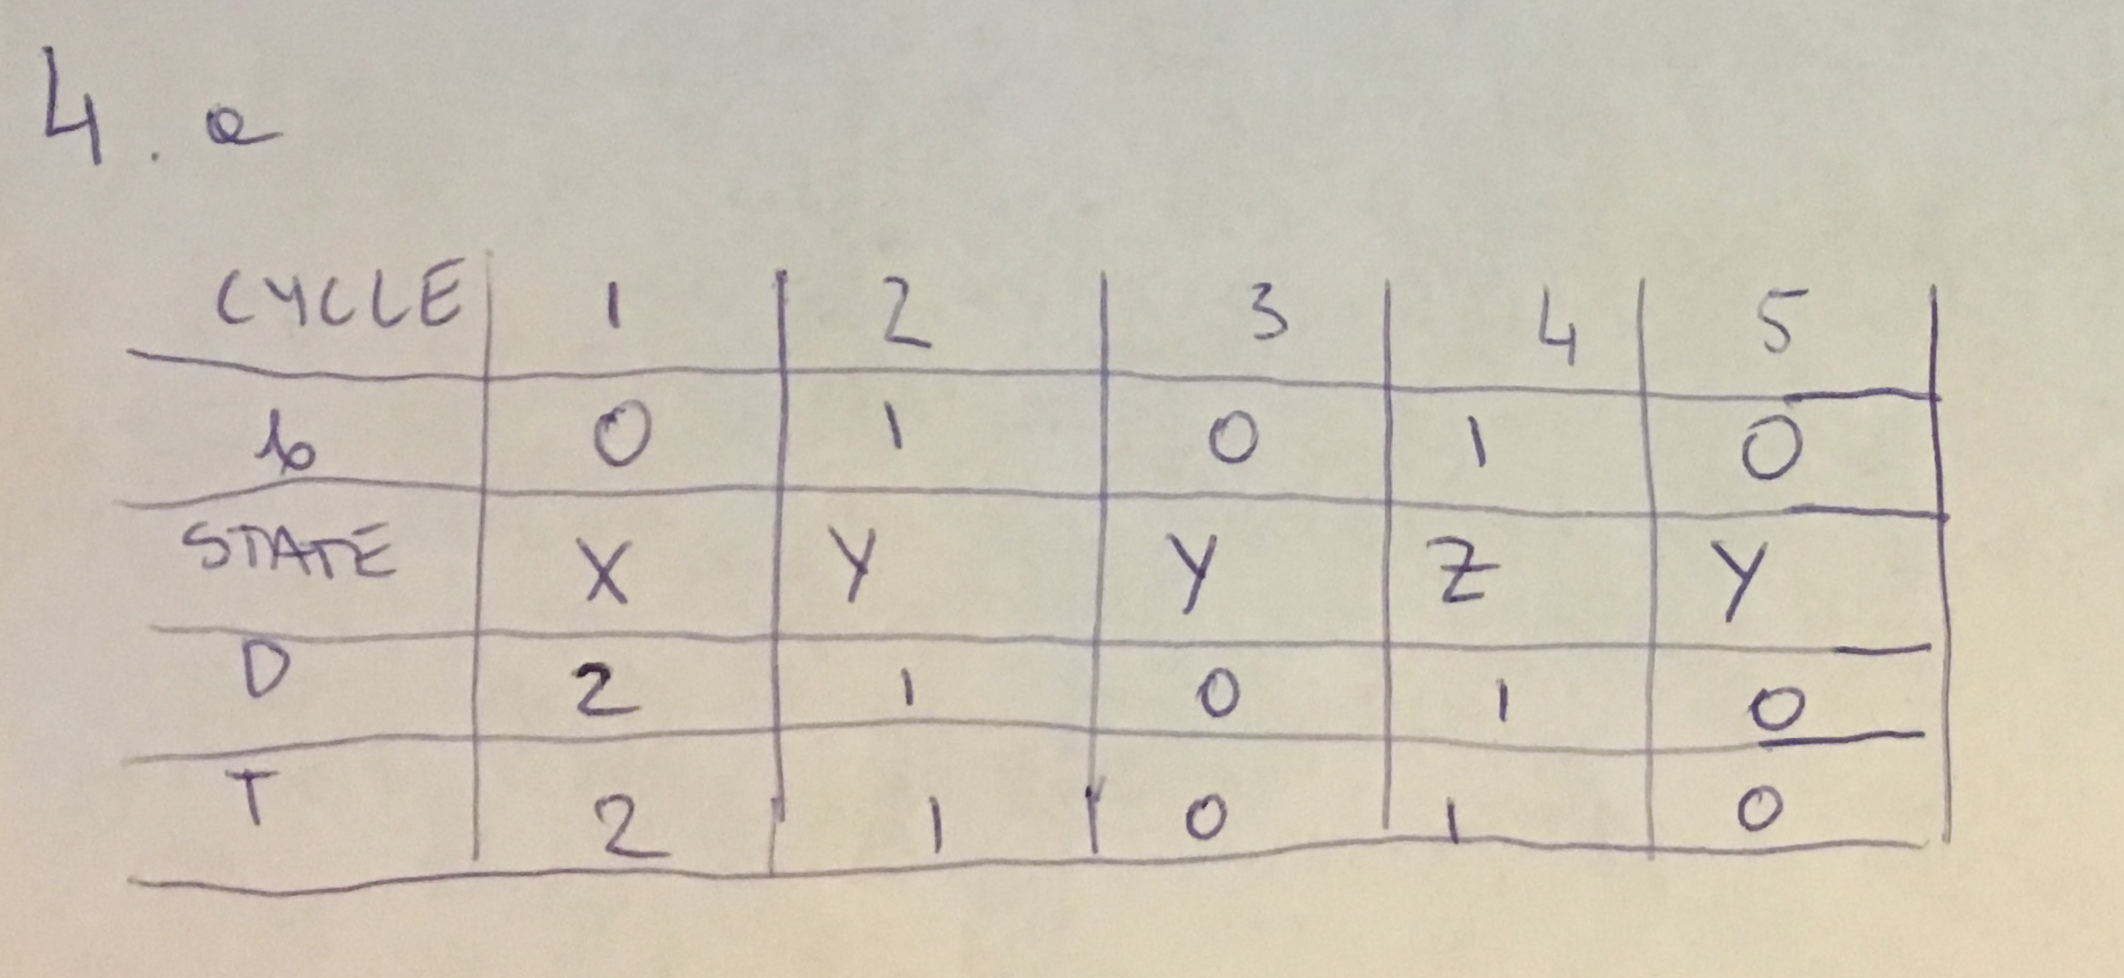 4. a
CYCLE 1 2 3 4 5
b 0 1 0 1 0
STATE X Y Y Z Y
D 2 1 0 1 0
T 2 1 0 1 0